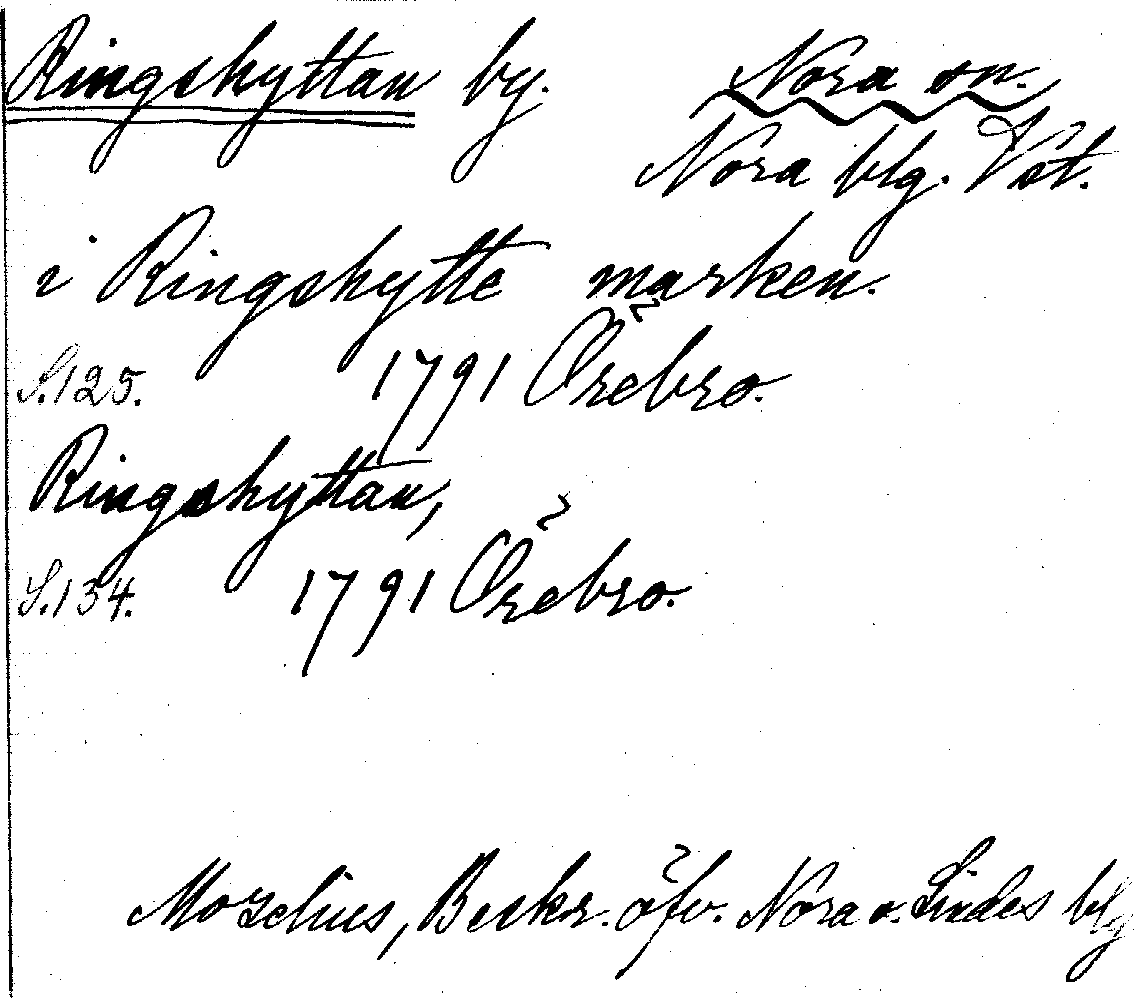 Ringshyttan by. Nora sn.
Nora blg. Vst.
i Ringshytte marken.
S.125. 1791 Örebro.
Ringshyttan,
S.134. 1791 Örebro.
Morelius, Beskr. öfv. Nora o. Lindes blg